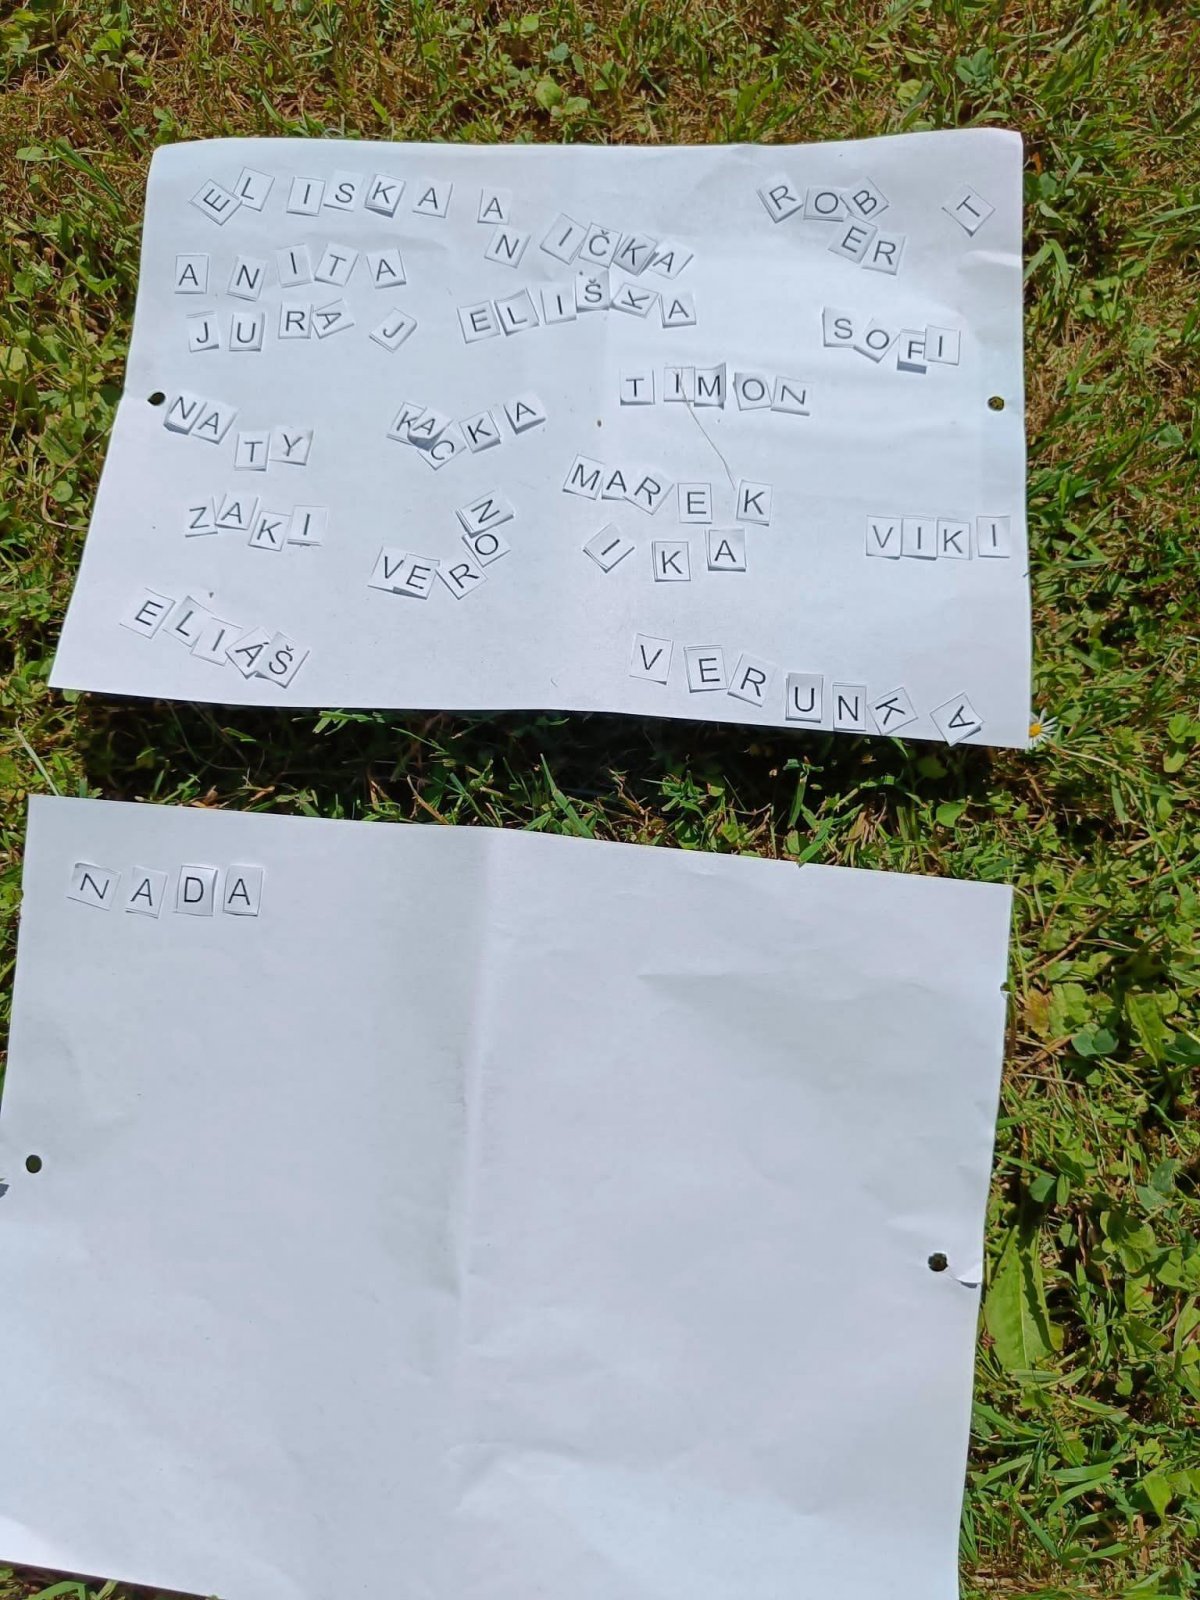 ELISKA
ANIČKA
ROBERT
ANITA
JURAJ
ELIŠKA
SOFI
TIMON
NATY
KACKA
MAREK
ZAKI
VERONIKA
VIKI
ELIÁŠ
VERUNKA
NADA